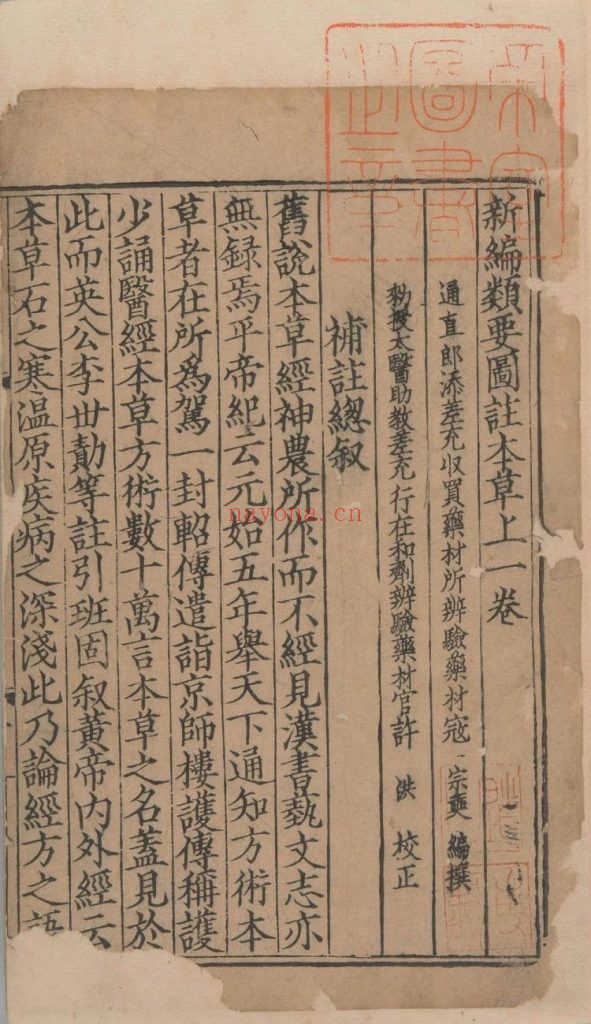 新編類要圖註本草上一卷
通直郎添差充收買藥材所辨驗藥材寇宗奭編撰
勑授太醫助教差充行在和劑辨驗藥材官許洪校正
補註緫叙
舊說本草經神農所作而不經見漢書藝文志亦
無録焉平帝紀云元始五年舉天下通知方術本
草者在所爲駕一封軺傳遣詣京師樓護傳稱護
少誦醫經本草方術數十萬言本草之名蓋見於
此而英公李世勣等註引班固叙黃帝內外經云
本草石之寒温原疾病之深淺此乃論經方之語
nayona.cn